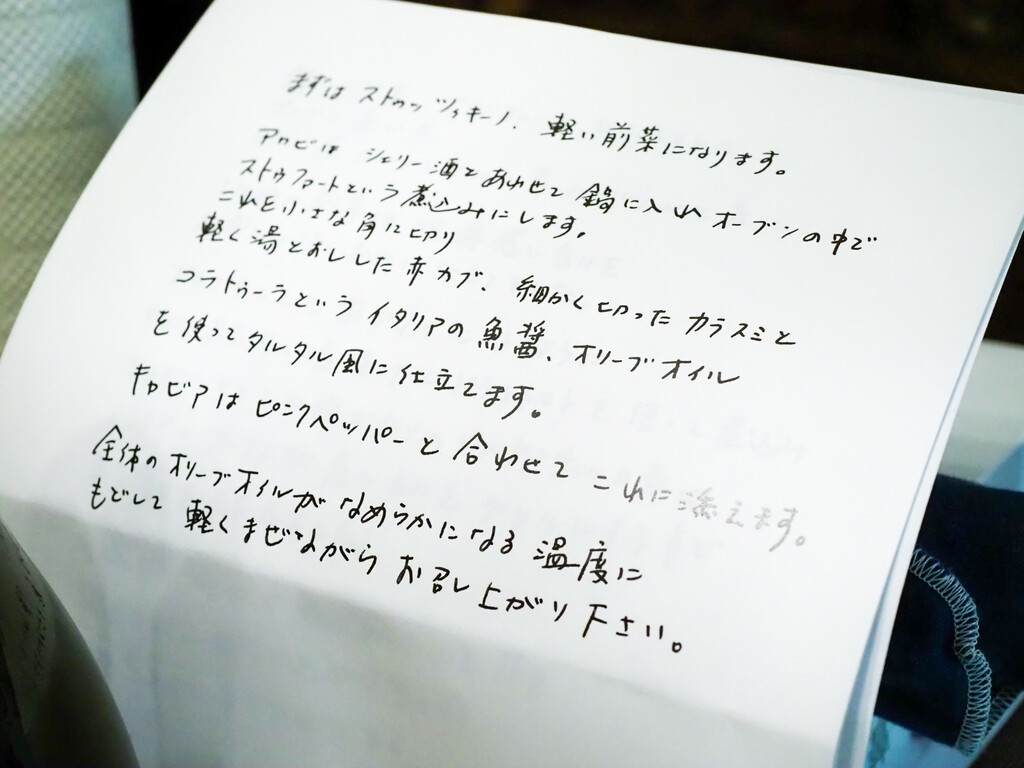 まずは ストゥッツィキーノ、軽い前菜になります。
アワビは シェリー酒とあわせて 鍋に入れ オーブンの中で
ストゥファートという煮込みにします。
これを小さな角に切り
軽く湯とおしした赤カブ、細かく切ったカラスミと
コラトゥーラという イタリアの魚醤、オリーブオイル
を使ってタルタル風に仕立てます。
キャビアは ピンクペッパーと 合わせて これに添えます。
全体のオリーブオイルが なめらかになる 温度に
もどして 軽くまぜながら お召し上がり下さい。